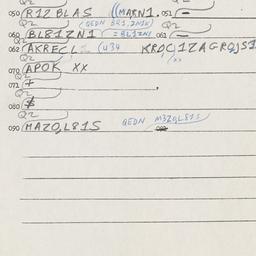 050 R1Z BLAS ((MARN1. 051 –
Q2 (QEDN BR1,2N1K) Q2
060 BL81ZN1 (=BL1ZN1 061 –
Q2
062 AKRECL (U34 KR0C1ZAGRQJS1
Q2
070 APOK XX
Q2
071 +
Q2
080 $
Q2
090 MAZQL81S QEDN M3ZQL81S